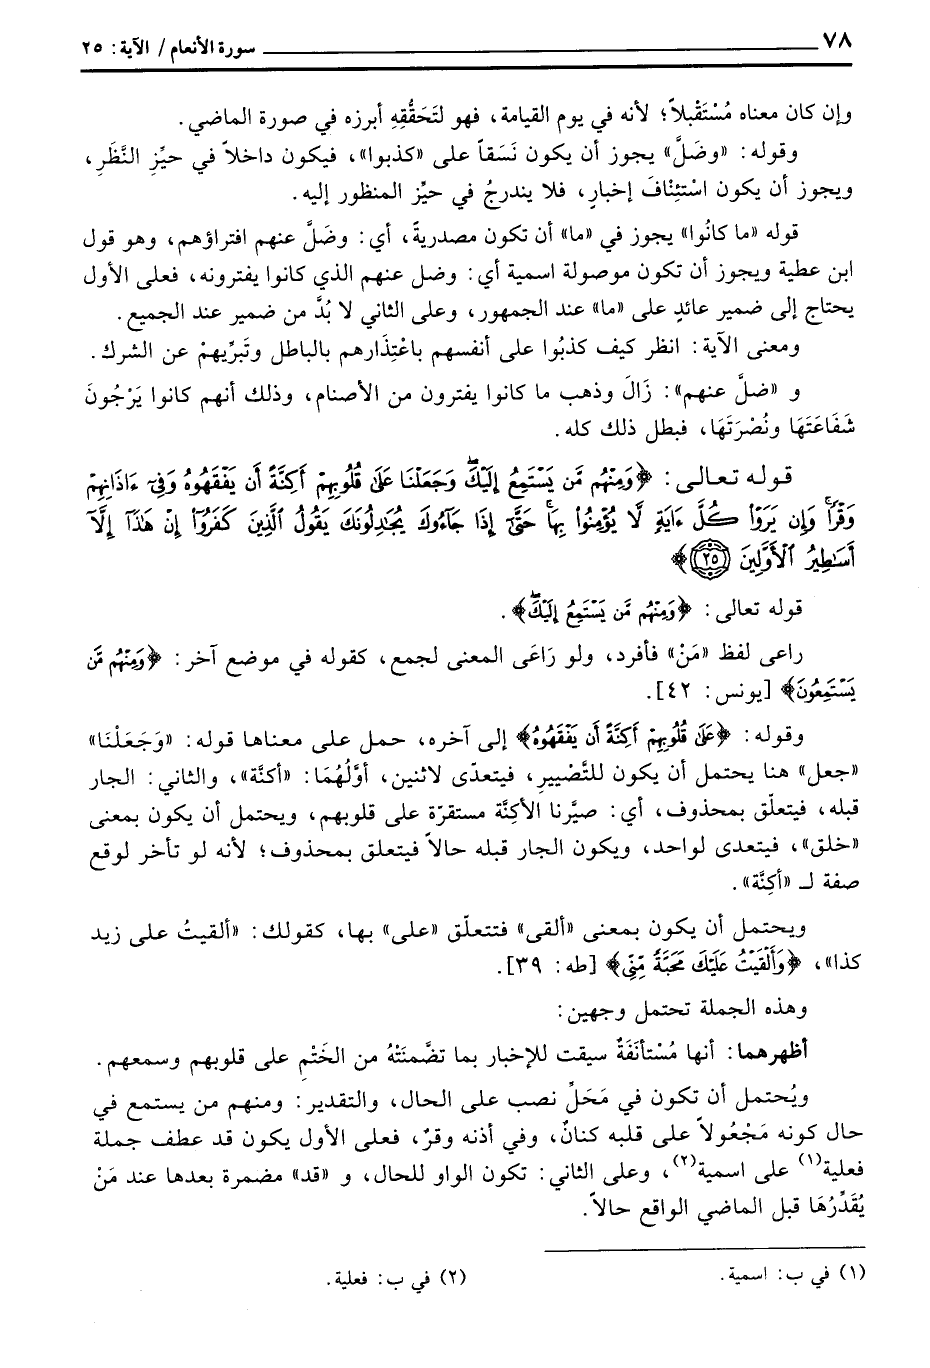 ٧٨ سورة الأنعام / الآية: ٢٥
وإن كان معناه مُسْتَقْبلاً؛ لأنه في يوم القيامة، فهو لتَحَقُّقِهِ أبرزه في صورة الماضي.
وقوله: «وضَلَّ» يجوز أن يكون نَسَقاً على «كذبوا»، فيكون داخلاً في حيِّزِ النَّظَرِ،
ويجوز أن يكون اسْتِئْنافَ إخبارٍ، فلا يندرجُ في حيِّز المنظور إليه.
قوله «ما كانُوا» يجوز في «ما» أن تكون مصدريةً، أي: وضَلَّ عنهم افتراؤهم، وهو قول
ابن عطية ويجوز أن تكون موصولة اسمية أي: وضل عنهم الذي كانوا يفترونه، فعلى الأول
يحتاج إلى ضمير عائدٍ على «ما» عند الجمهور، وعلى الثاني لا بُدَّ من ضمير عند الجميع.
ومعنى الآية: انظر كيف كذبُوا على أنفسهم باعْتِذَارهم بالباطل وتَبرِّيهمْ عن الشرك.
و «ضلَّ عنهم»: زَالَ وذهب ما كانوا يفترون من الأصنام، وذلك أنهم كانوا يَرْجُونَ
شَفَاعَتَهَا ونُصْرَتَهَا، فبطل ذلك كله.
قوله تعالى: ﴿وَمِنْهُم مَّن يَسْتَمِعُ إِلَيْكَۖ وَجَعَلْنَا عَلَىٰ قُلُوبِهِمْ أَكِنَّةً أَن يَفْقَهُوهُ وَفِىٓ ءَاذَانِهِمْ
وَقْرًاۚ وَإِن يَرَوْا۟ كُلَّ ءَايَةٍ لَّا يُؤْمِنُوا۟ بِهَاۚ حَتَّىٰٓ إِذَا جَآءُوكَ يُجَٰدِلُونَكَ يَقُولُ ٱلَّذِينَ كَفَرُوٓا۟ إِنْ هَٰذَآ إِلَّآ
أَسَٰطِيرُ ٱلْأَوَّلِينَ ٢٥﴾
قوله تعالى: ﴿وَمِنْهُم مَّن يَسْتَمِعُ إِلَيْكَۖ﴾.
راعى لفظ «مَنْ» فأفرد، ولو رَاعَى المعنى لجمع، كقوله في موضع آخر: ﴿وَمِنْهُم مَّن
يَسْتَمِعُونَ﴾ [يونس: ٤٢].
وقوله: ﴿عَلَىٰ قُلُوبِهِمْ أَكِنَّةً أَن يَفْقَهُوهُ﴾ إلى آخره، حمل على معناها قوله: «وَجَعَلْنَا»
«جعل» هنا يحتمل أن يكون للتَّصْييرِ، فيتعدّى لاثنين، أوَّلُهُمَا: «أكنَّة»، والثاني: الجار
قبله، فيتعلّق بمحذوف، أي: صيَّرنا الأكِنَّة مستقرّة على قلوبهم، ويحتمل أن يكون بمعنى
«خلق»، فيتعدى لواحد، ويكون الجار قبله حالاً فيتعلق بمحذوف؛ لأنه لو تأخر لوقع
صفة لـ «أكِنَّة».
ويحتمل أن يكون بمعنى «ألقى» فتتعلّق «على» بها، كقولك: «ألقيتُ على زيد
كذا»، ﴿وَأَلْقَيْتُ عَلَيْكَ مَحَبَّةً مِّنِّى﴾ [طه: ٣٩].
وهذه الجملة تحتمل وجهين:
أظهرهما: أنها مُسْتأنَفَةٌ سيقت للإخبار بما تضَّمنَتْهُ من الخَتْمِ على قلوبهم وسمعهم.
ويُحتمل أن تكون في مَحَلِّ نصب على الحال، والتقدير: ومنهم من يستمع في
حال كونه مَجْعُولاً على قلبه كنانٌ، وفي أذنه وقرٌ، فعلى الأول يكون قد عطف جملة
فعلية(١) على اسمية(٢)، وعلى الثاني: تكون الواو للحال، و «قد» مضمرة بعدها عند مَنْ
يُقَدِّرُهَا قبل الماضي الواقع حالاً.
(١) في ب: اسمية. (٢) في ب: فعلية.